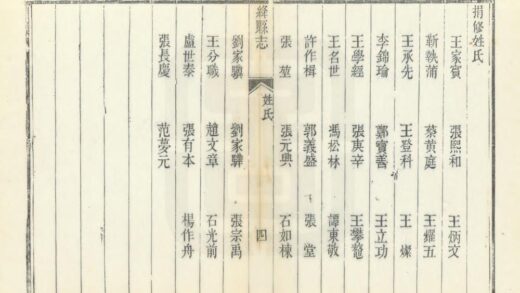 捐修姓氏
王家賓 張熙和 王炳文
靳執蒲 蔡黄庭 王耀五
王承先 王登科 王燦
李錦瑜 鄭寶善 王立功
王學經 張庚辛 王攀鰲
王名世 馮松林 譚東敬
許作楫 郭義盛 張堂
張堃 張元典 石如棟
絳縣志 姓氏 四
劉家驥 劉家驊 張宗禹
王分職 趙文章 石光前
盧世泰 張有本 楊作舟
張長慶 范夢元